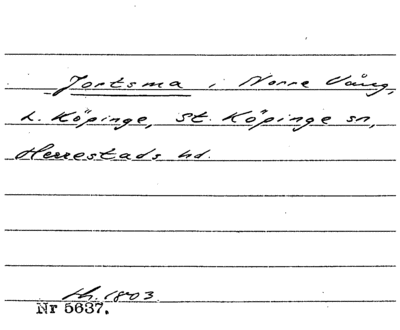 Jortsma i Norre Vång,
L. Köpinge, St. Köpinge sn,
Herrestads hd.
Lh. 1803
Nr 5637.